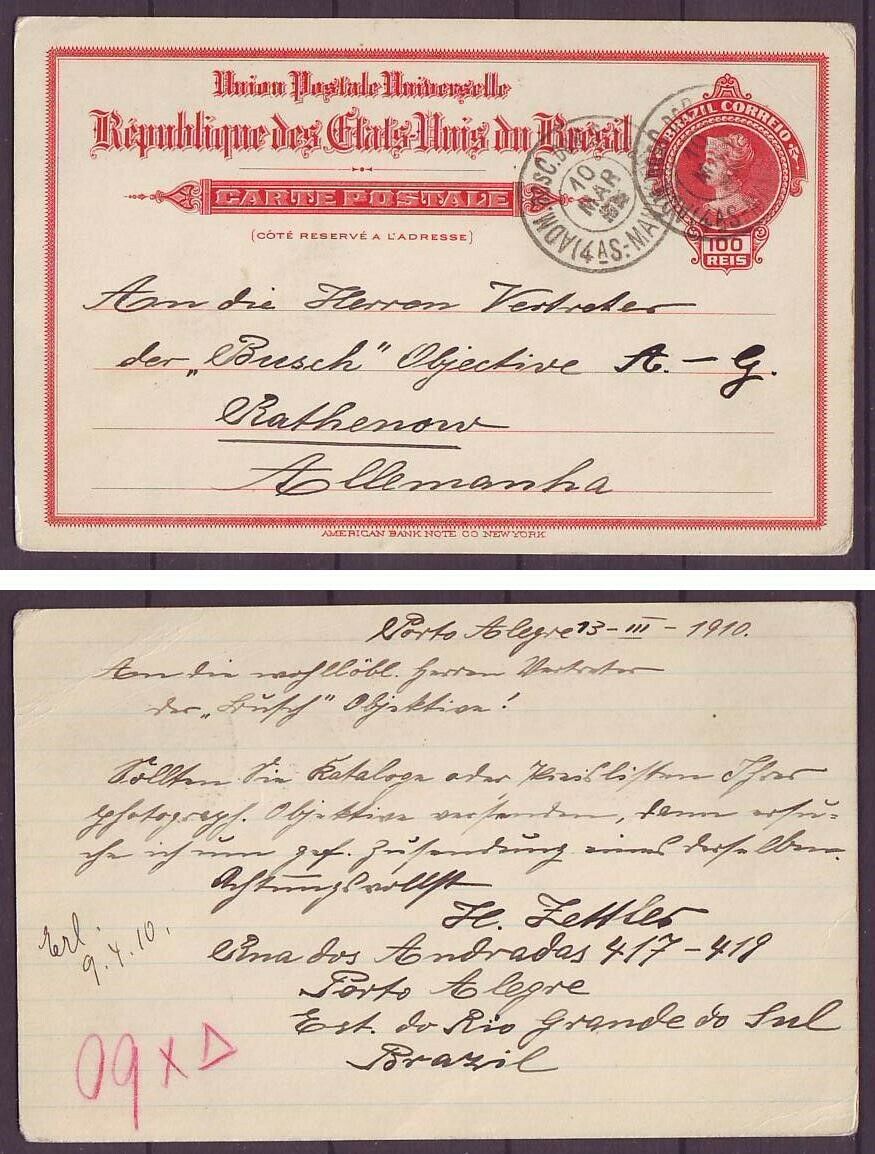 Union Postale Universelle
République des États-Unis du Brésil
CARTE POSTALE
(CÔTÉ RESERVÉ A L'ADRESSE)
BRAZIL CORREIO
100
REIS
10
MAR
(4AS-MA
An die Herren Vertreter
der „Busch" Objective A.-G.
Rathenow
Allemanha
AMERICAN BANK NOTE CO NEW YORK
Porto Alegre 13-III-1910.
An die wohllöbl. Herren Vertreter
der „Busch" Objektive!
Sollten Sie Kataloge oder Preislisten Ihrer
photograph. Objektive versenden, dann ersu-
che ich um gef. Zusendung eines derselben.
Achtungsvollst
H. Zettler
Rua dos Andradas 417-419
Porto Alegre
Est. do Rio Grande do Sul
Brazil
Erl.
9.4.10.
09 X Δ